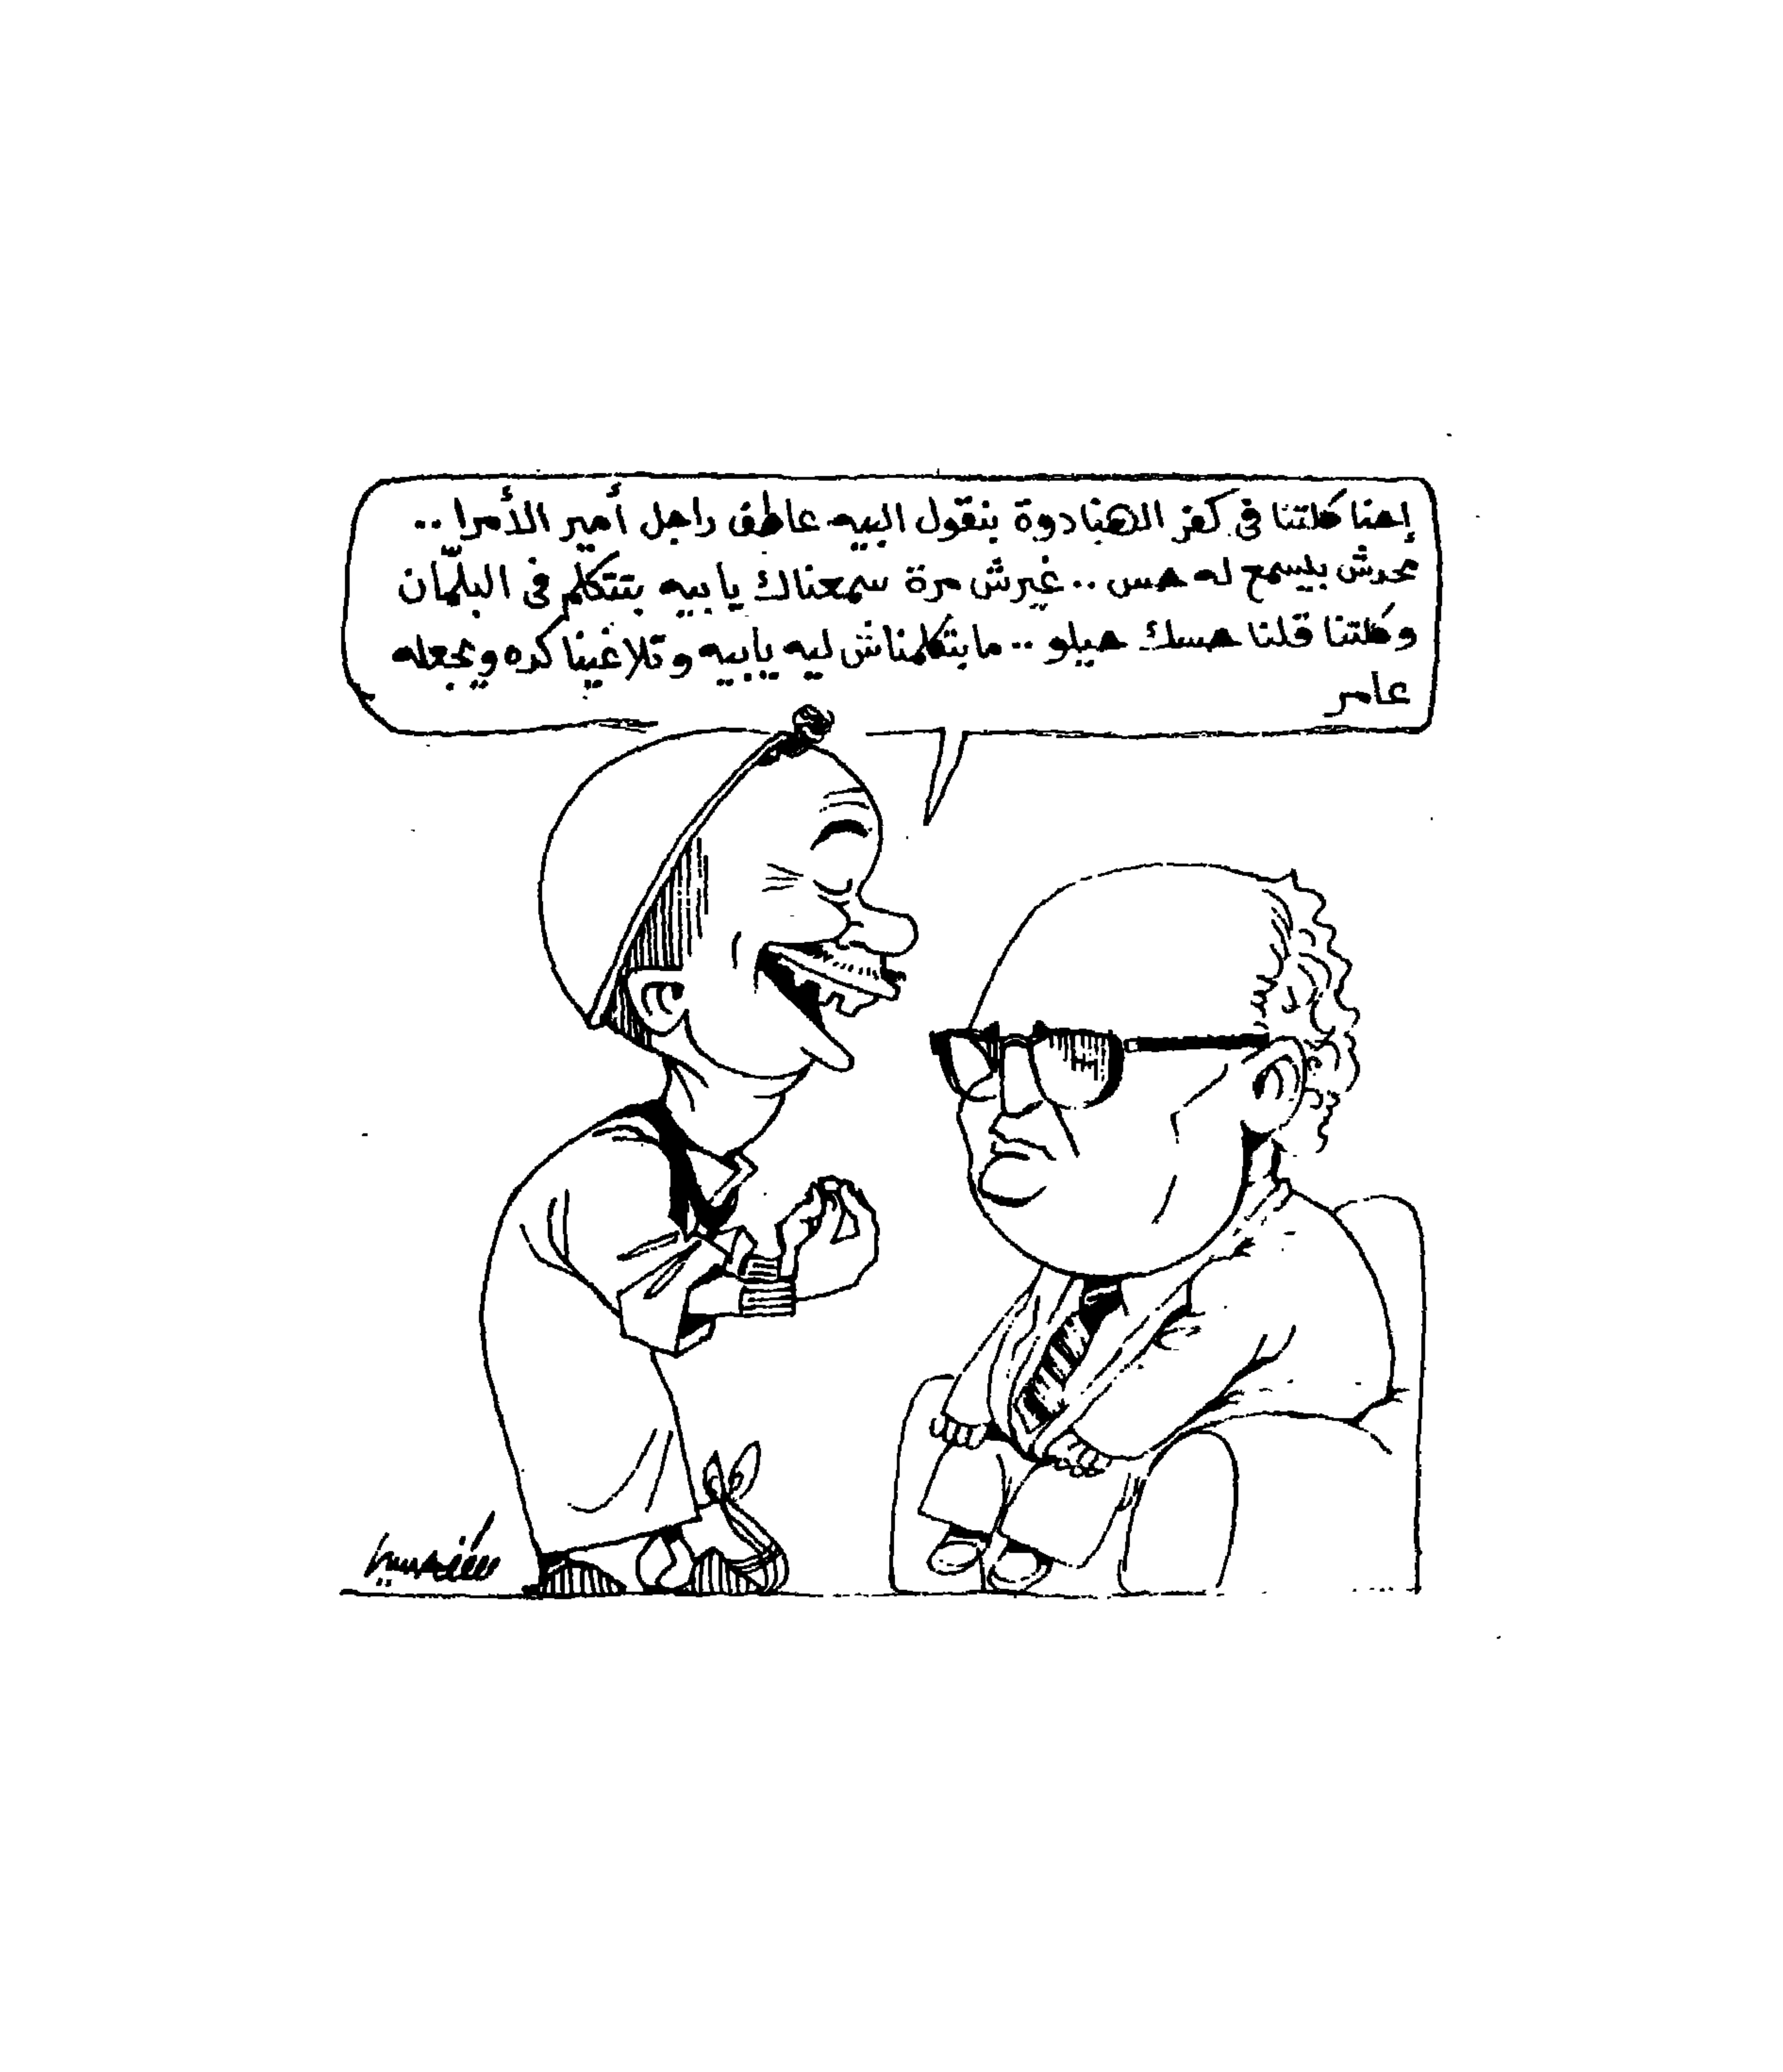 إحنا كلتنا فى كفر الهنادوة بنقول البيه عاطف راجل أمير الأمرا ..
محدش بيسمع له حس .. غيرش مرة سمعناك يا بيه بتتكلم فى البلمّان
وكلتنا قلنا حسك حيلو .. ما بتكلمناش ليه يا بيه وتلاغينا كده ويجعله
عامر